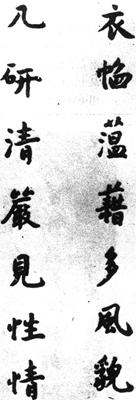 衣帢薀藉多風貌
几研清嚴見性情